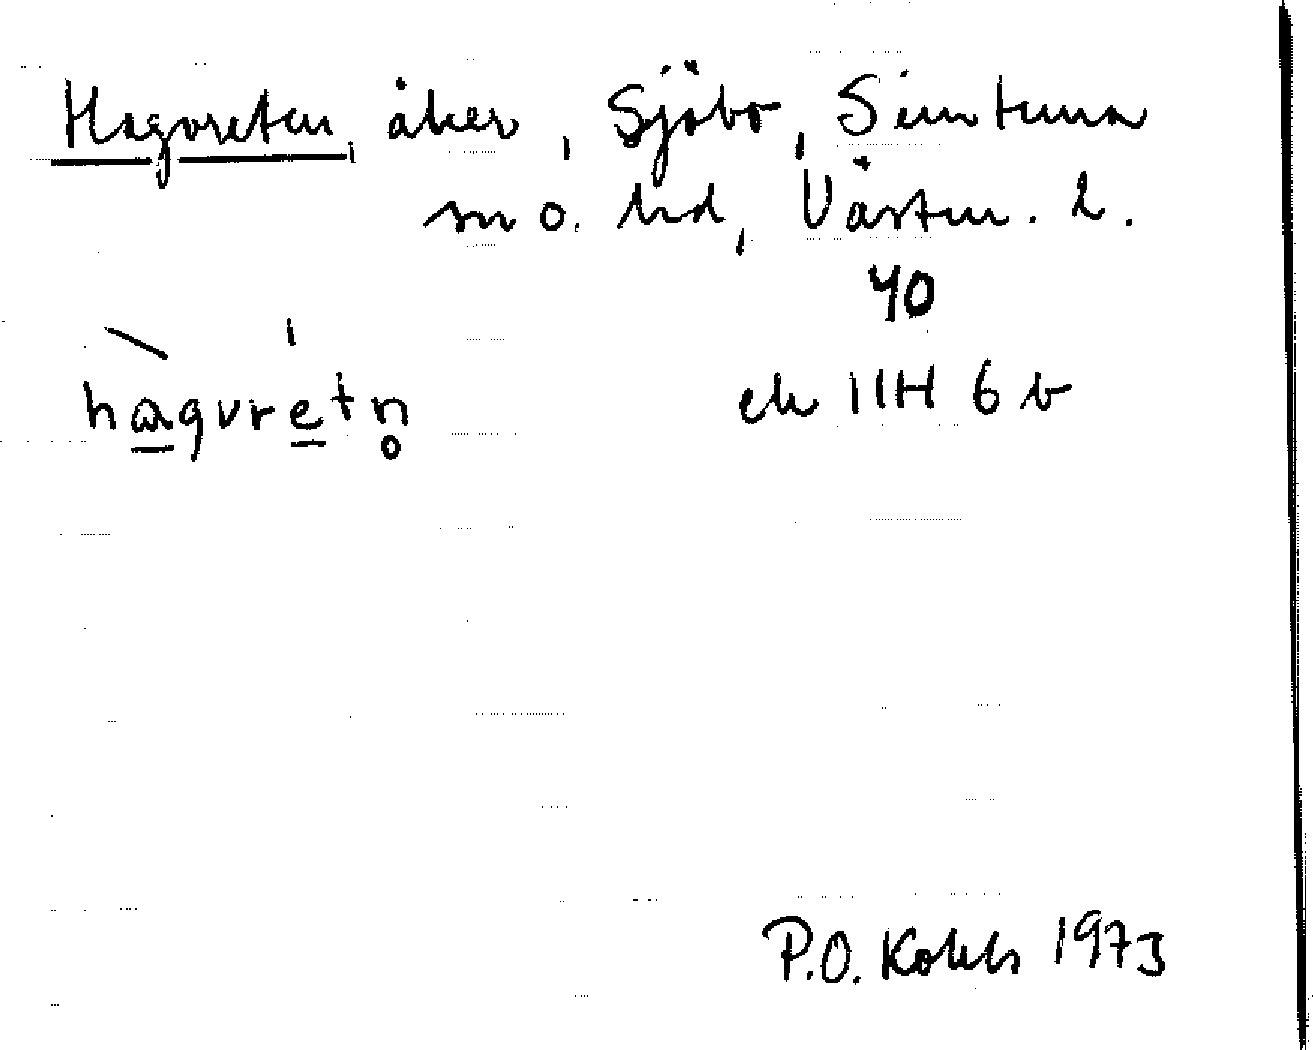 Hagvreten, åker, Sjöbo, Simtuna
sn o. hd, Västm. l.
40
hagvretn̥
ek 11H 6 b
P.O. Kolsbs 1973